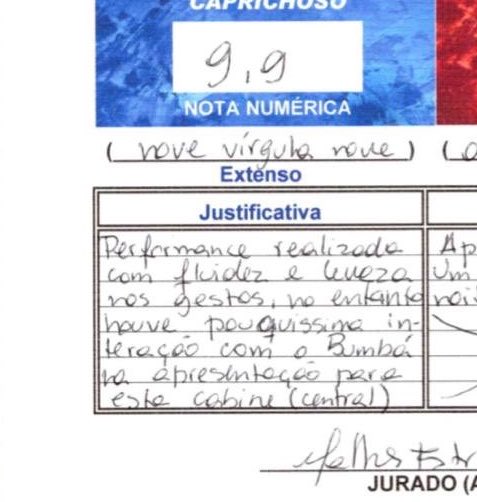 CAPRICHOSO
9,9
NOTA NUMÉRICA
( nove vírgula nove ) (
Extenso
Justificativa
Performance realizada Ap
com fluidez e leveza Um
nos gestos, no entanto noi
houve pouquíssima in-
teração com o Bumbá
na apresentação para
esta cabine (central)
JURADO (A